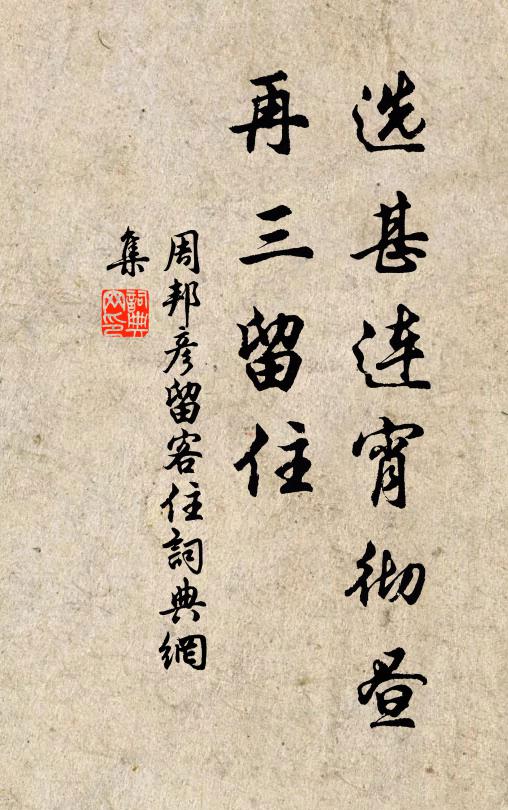 选甚连宵彻昼
再三留住
周邦彦留客住詞典網
集
詞典
网印